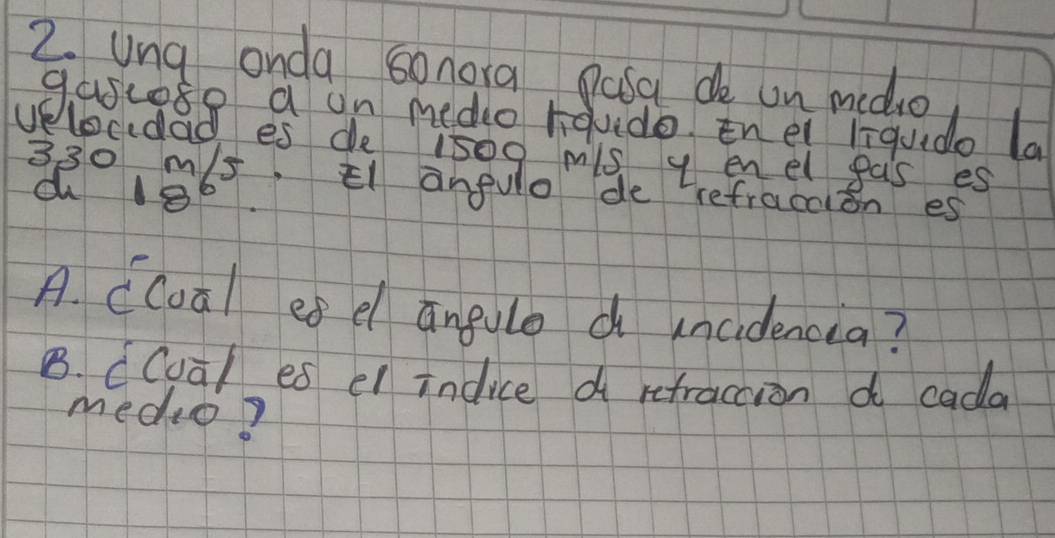 2. Una onda sonora pasa de un medio
gaseoso a un medio líquido. En el líquido la
velocidad es de 1500 m/s y en el gas es
330 m/s. El ángulo de refracción es
de 18°.
A. ¿Cuál es el ángulo de incidencia?
B. ¿Cuál es el índice de refracción de cada
medio?